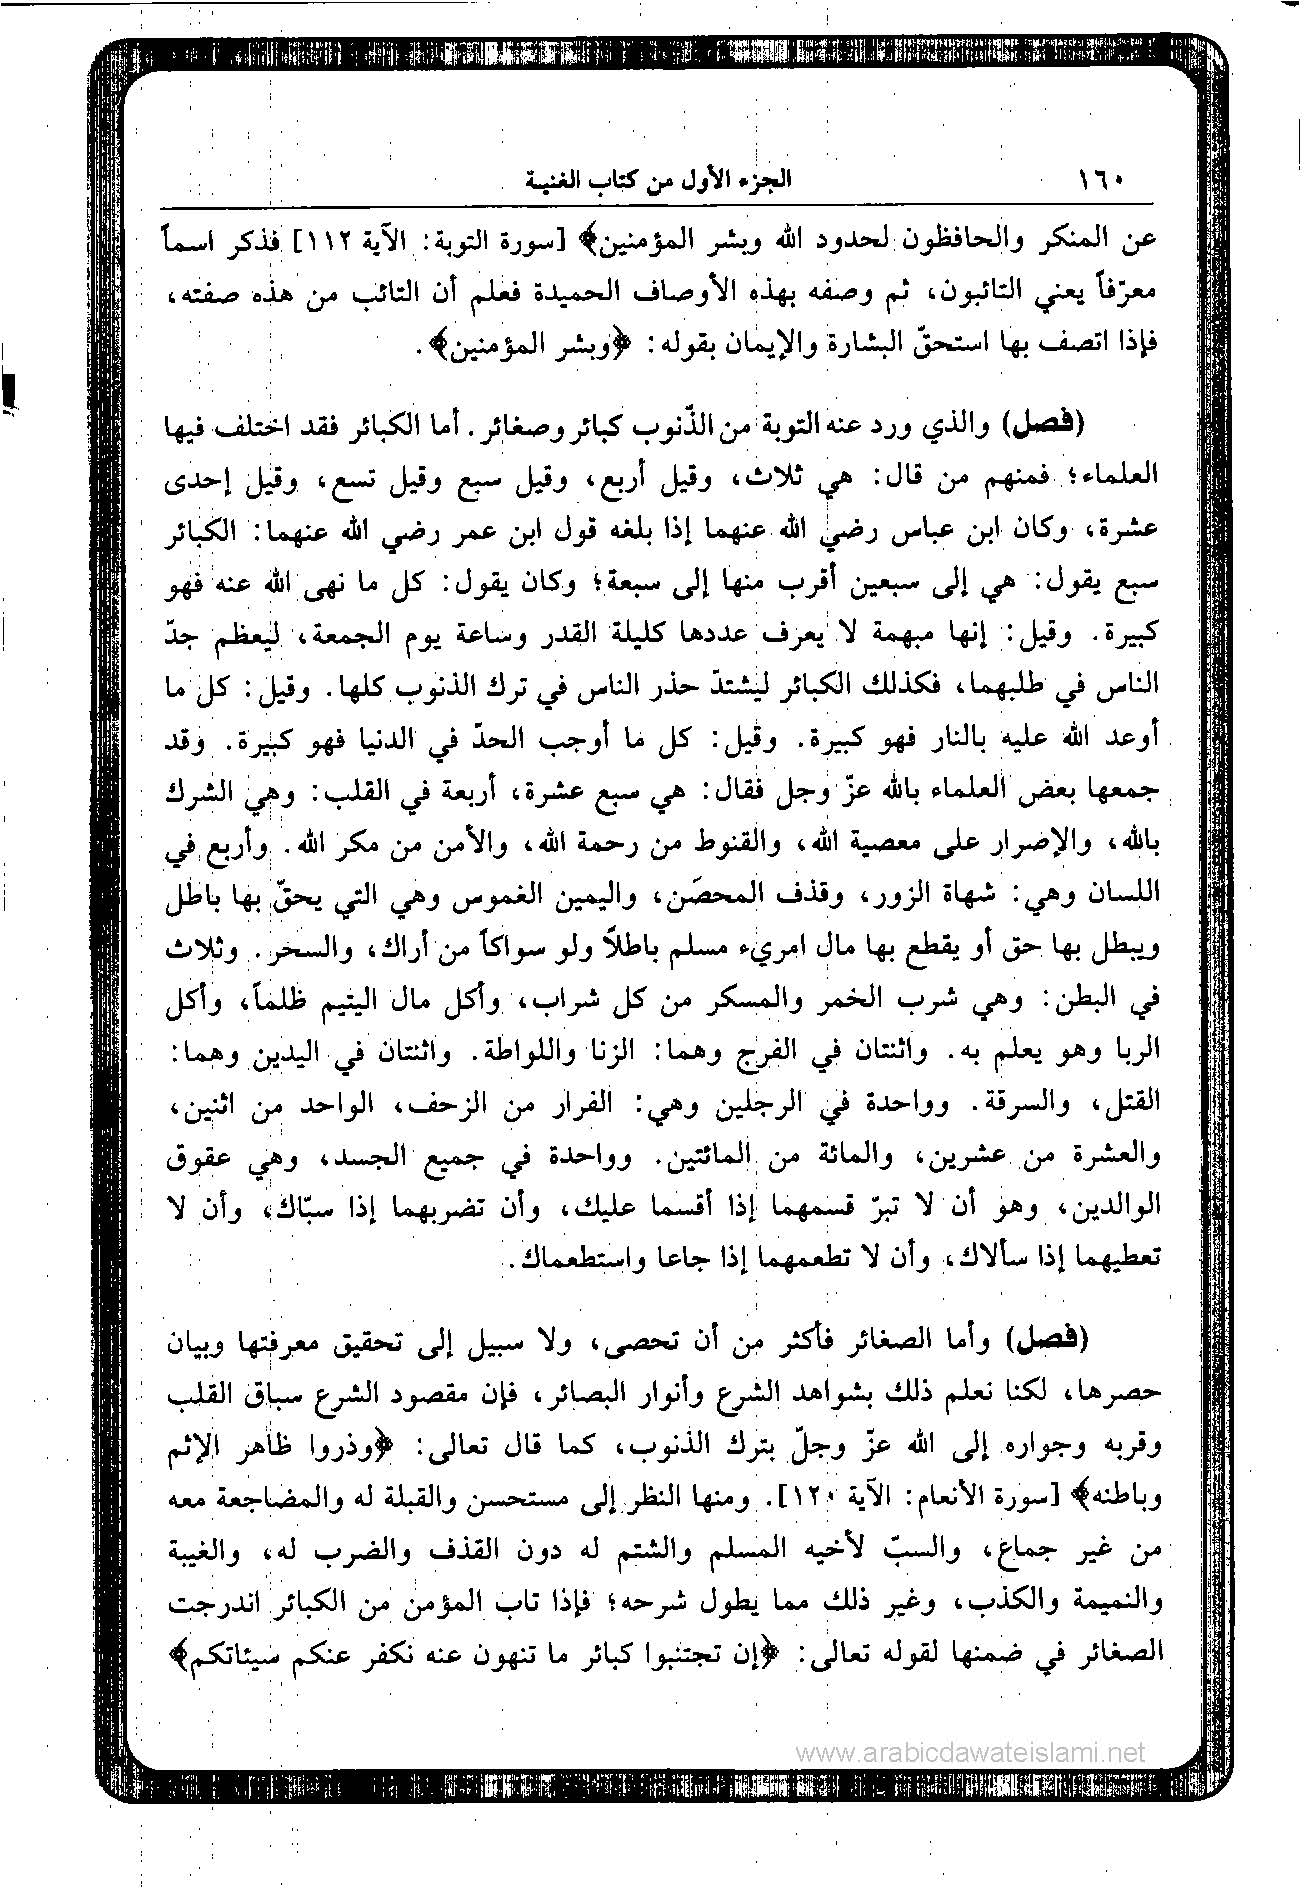 ١٦٠ الجزء الأول من كتاب الغنية
عن المنكر والحافظون لحدود الله وبشر المؤمنين﴾ [سورة التوبة: الآية ١١٢] فذكر اسماً
معرّفاً يعني التائبون، ثم وصفه بهذه الأوصاف الحميدة فعلم أن التائب من هذه صفته،
فإذا اتصف بها استحقّ البشارة والإيمان بقوله: ﴿وبشر المؤمنين﴾.
(فصل) والذي ورد عنه التوبة من الذّنوب كبائر وصغائر. أما الكبائر فقد اختلف فيها
العلماء؛ فمنهم من قال: هي ثلاث، وقيل أربع، وقيل سبع وقيل تسع، وقيل إحدى
عشرة، وكان ابن عباس رضي الله عنهما إذا بلغه قول ابن عمر رضي الله عنهما: الكبائر
سبع يقول: هي إلى سبعين أقرب منها إلى سبعة؛ وكان يقول: كل ما نهى الله عنه فهو
كبيرة. وقيل: إنها مبهمة لا يعرف عددها كليلة القدر وساعة يوم الجمعة، ليعظم جدّ
الناس في طلبهما، فكذلك الكبائر ليشتدّ حذر الناس في ترك الذنوب كلها. وقيل: كل ما
أوعد الله عليه بالنار فهو كبيرة. وقيل: كل ما أوجب الحدّ في الدنيا فهو كبيرة. وقد
جمعها بعض العلماء بالله عزّ وجل فقال: هي سبع عشرة، أربعة في القلب: وهي الشرك
بالله، والإصرار على معصية الله، والقنوط من رحمة الله، والأمن من مكر الله. وأربع في
اللسان وهي: شهاة الزور، وقذف المحصَن، واليمين الغموس وهي التي يحقّ بها باطل
ويبطل بها حق أو يقطع بها مال امريء مسلم باطلاً ولو سواكاً من أراك، والسحر. وثلاث
في البطن: وهي شرب الخمر والمسكر من كل شراب، وأكل مال اليتيم ظلماً، وأكل
الربا وهو يعلم به. واثنتان في الفرج وهما: الزنا واللواطة. واثنتان في اليدين وهما:
القتل، والسرقة. وواحدة في الرجلين وهي: الفرار من الزحف، الواحد من اثنين،
والعشرة من عشرين، والمائة من المائتين. وواحدة في جميع الجسد، وهي عقوق
الوالدين، وهو أن لا تبرّ قسمهما إذا أقسما عليك، وأن تضربهما إذا سبّاك، وأن لا
تعطيهما إذا سألاك، وأن لا تطعمهما إذا جاعا واستطعماك.
(فصل) وأما الصغائر فأكثر من أن تحصى، ولا سبيل إلى تحقيق معرفتها وبيان
حصرها، لكنا نعلم ذلك بشواهد الشرع وأنوار البصائر، فإن مقصود الشرع سباق القلب
وقربه وجواره إلى الله عزّ وجلّ بترك الذنوب، كما قال تعالى: ﴿وذروا ظاهر الإثم
وباطنه﴾ [سورة الأنعام: الآية ١٢٠]. ومنها النظر إلى مستحسن والقبلة له والمضاجعة معه
من غير جماع، والسبّ لأخيه المسلم والشتم له دون القذف والضرب له، والغيبة
والنميمة والكذب، وغير ذلك مما يطول شرحه؛ فإذا تاب المؤمن من الكبائر اندرجت
الصغائر في ضمنها لقوله تعالى: ﴿إن تجتنبوا كبائر ما تنهون عنه نكفر عنكم سيئاتكم﴾
www.arabicdawateislami.net